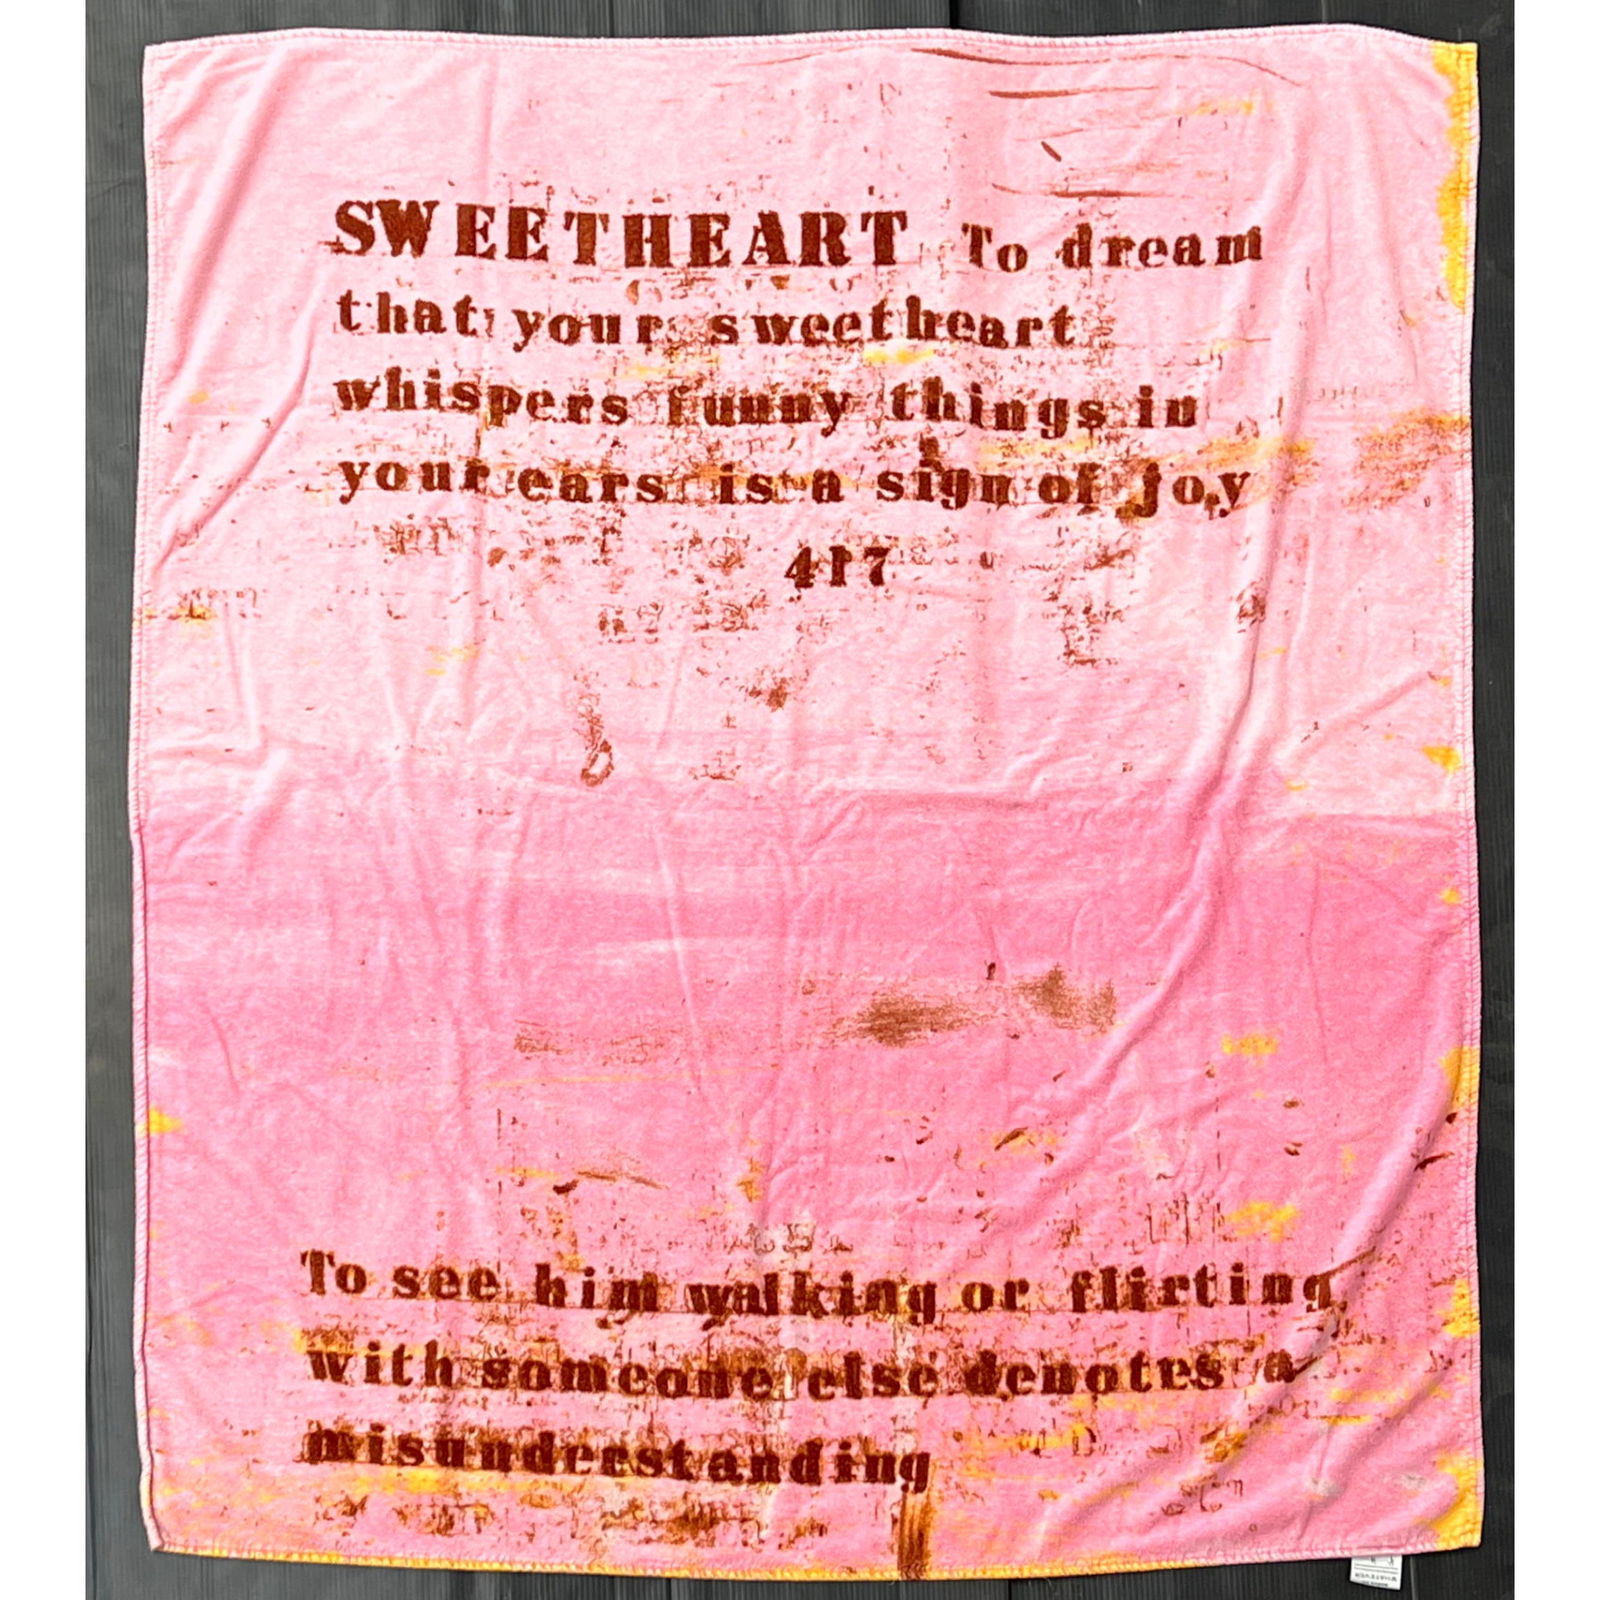 SWEETHEART To dream
that your sweetheart
whispers funny things in
your ears is a sign of joy
417
To see him walking or flirting
with someone else denotes a
misunderstanding
WHATEVER